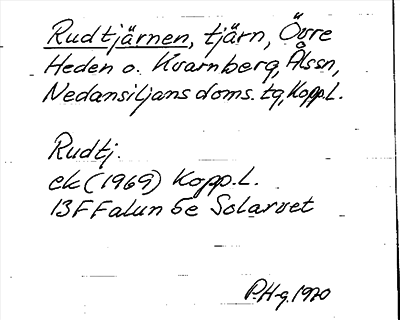 Rudtjärnen, tjärn, Övre
Heden o. Kvarnberg, Ålssn,
Nedansiljans doms. tg, Kopp.L.
Rudtj.
ek (1969) Kopp.L.
13F Falun 5e Solarvet
P.H-g. 1970